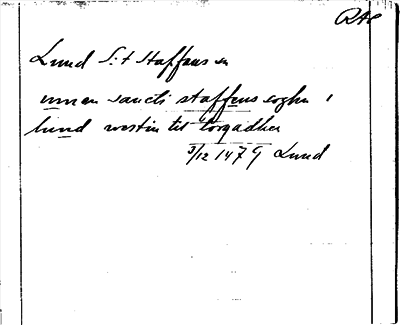 RAP
Lund S:t Staffans sn
innan sancti staffens soghn i
lund westin til torgadhen
3/12 1479 Lund